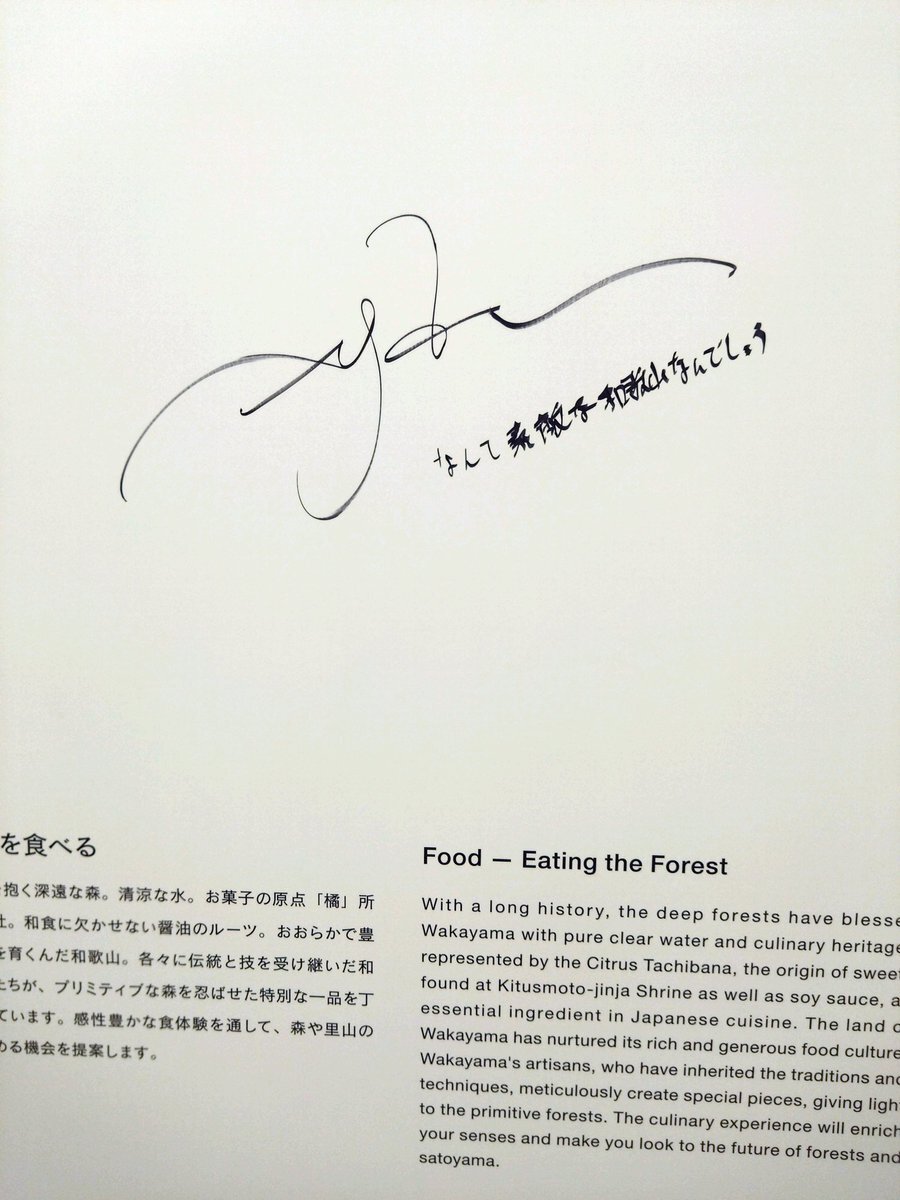 なんて素敵な和歌山なんでしょう
を食べる
抱く深遠な森。清涼な水。お菓子の原点「橘」所
社。和食に欠かせない醤油のルーツ。おおらかで豊
を育くんだ和歌山。各々に伝統と技を受け継いだ和
たちが、プリミティブな森を忍ばせた特別な一品を丁
ています。感性豊かな食体験を通して、森や里山の
める機会を提案します。
Food — Eating the Forest
With a long history, the deep forests have blesse
Wakayama with pure clear water and culinary heritage
represented by the Citrus Tachibana, the origin of sweet
found at Kitusmoto-jinja Shrine as well as soy sauce, a
essential ingredient in Japanese cuisine. The land o
Wakayama has nurtured its rich and generous food culture
Wakayama's artisans, who have inherited the traditions and
techniques, meticulously create special pieces, giving ligh
to the primitive forests. The culinary experience will enrich
your senses and make you look to the future of forests and
satoyama.